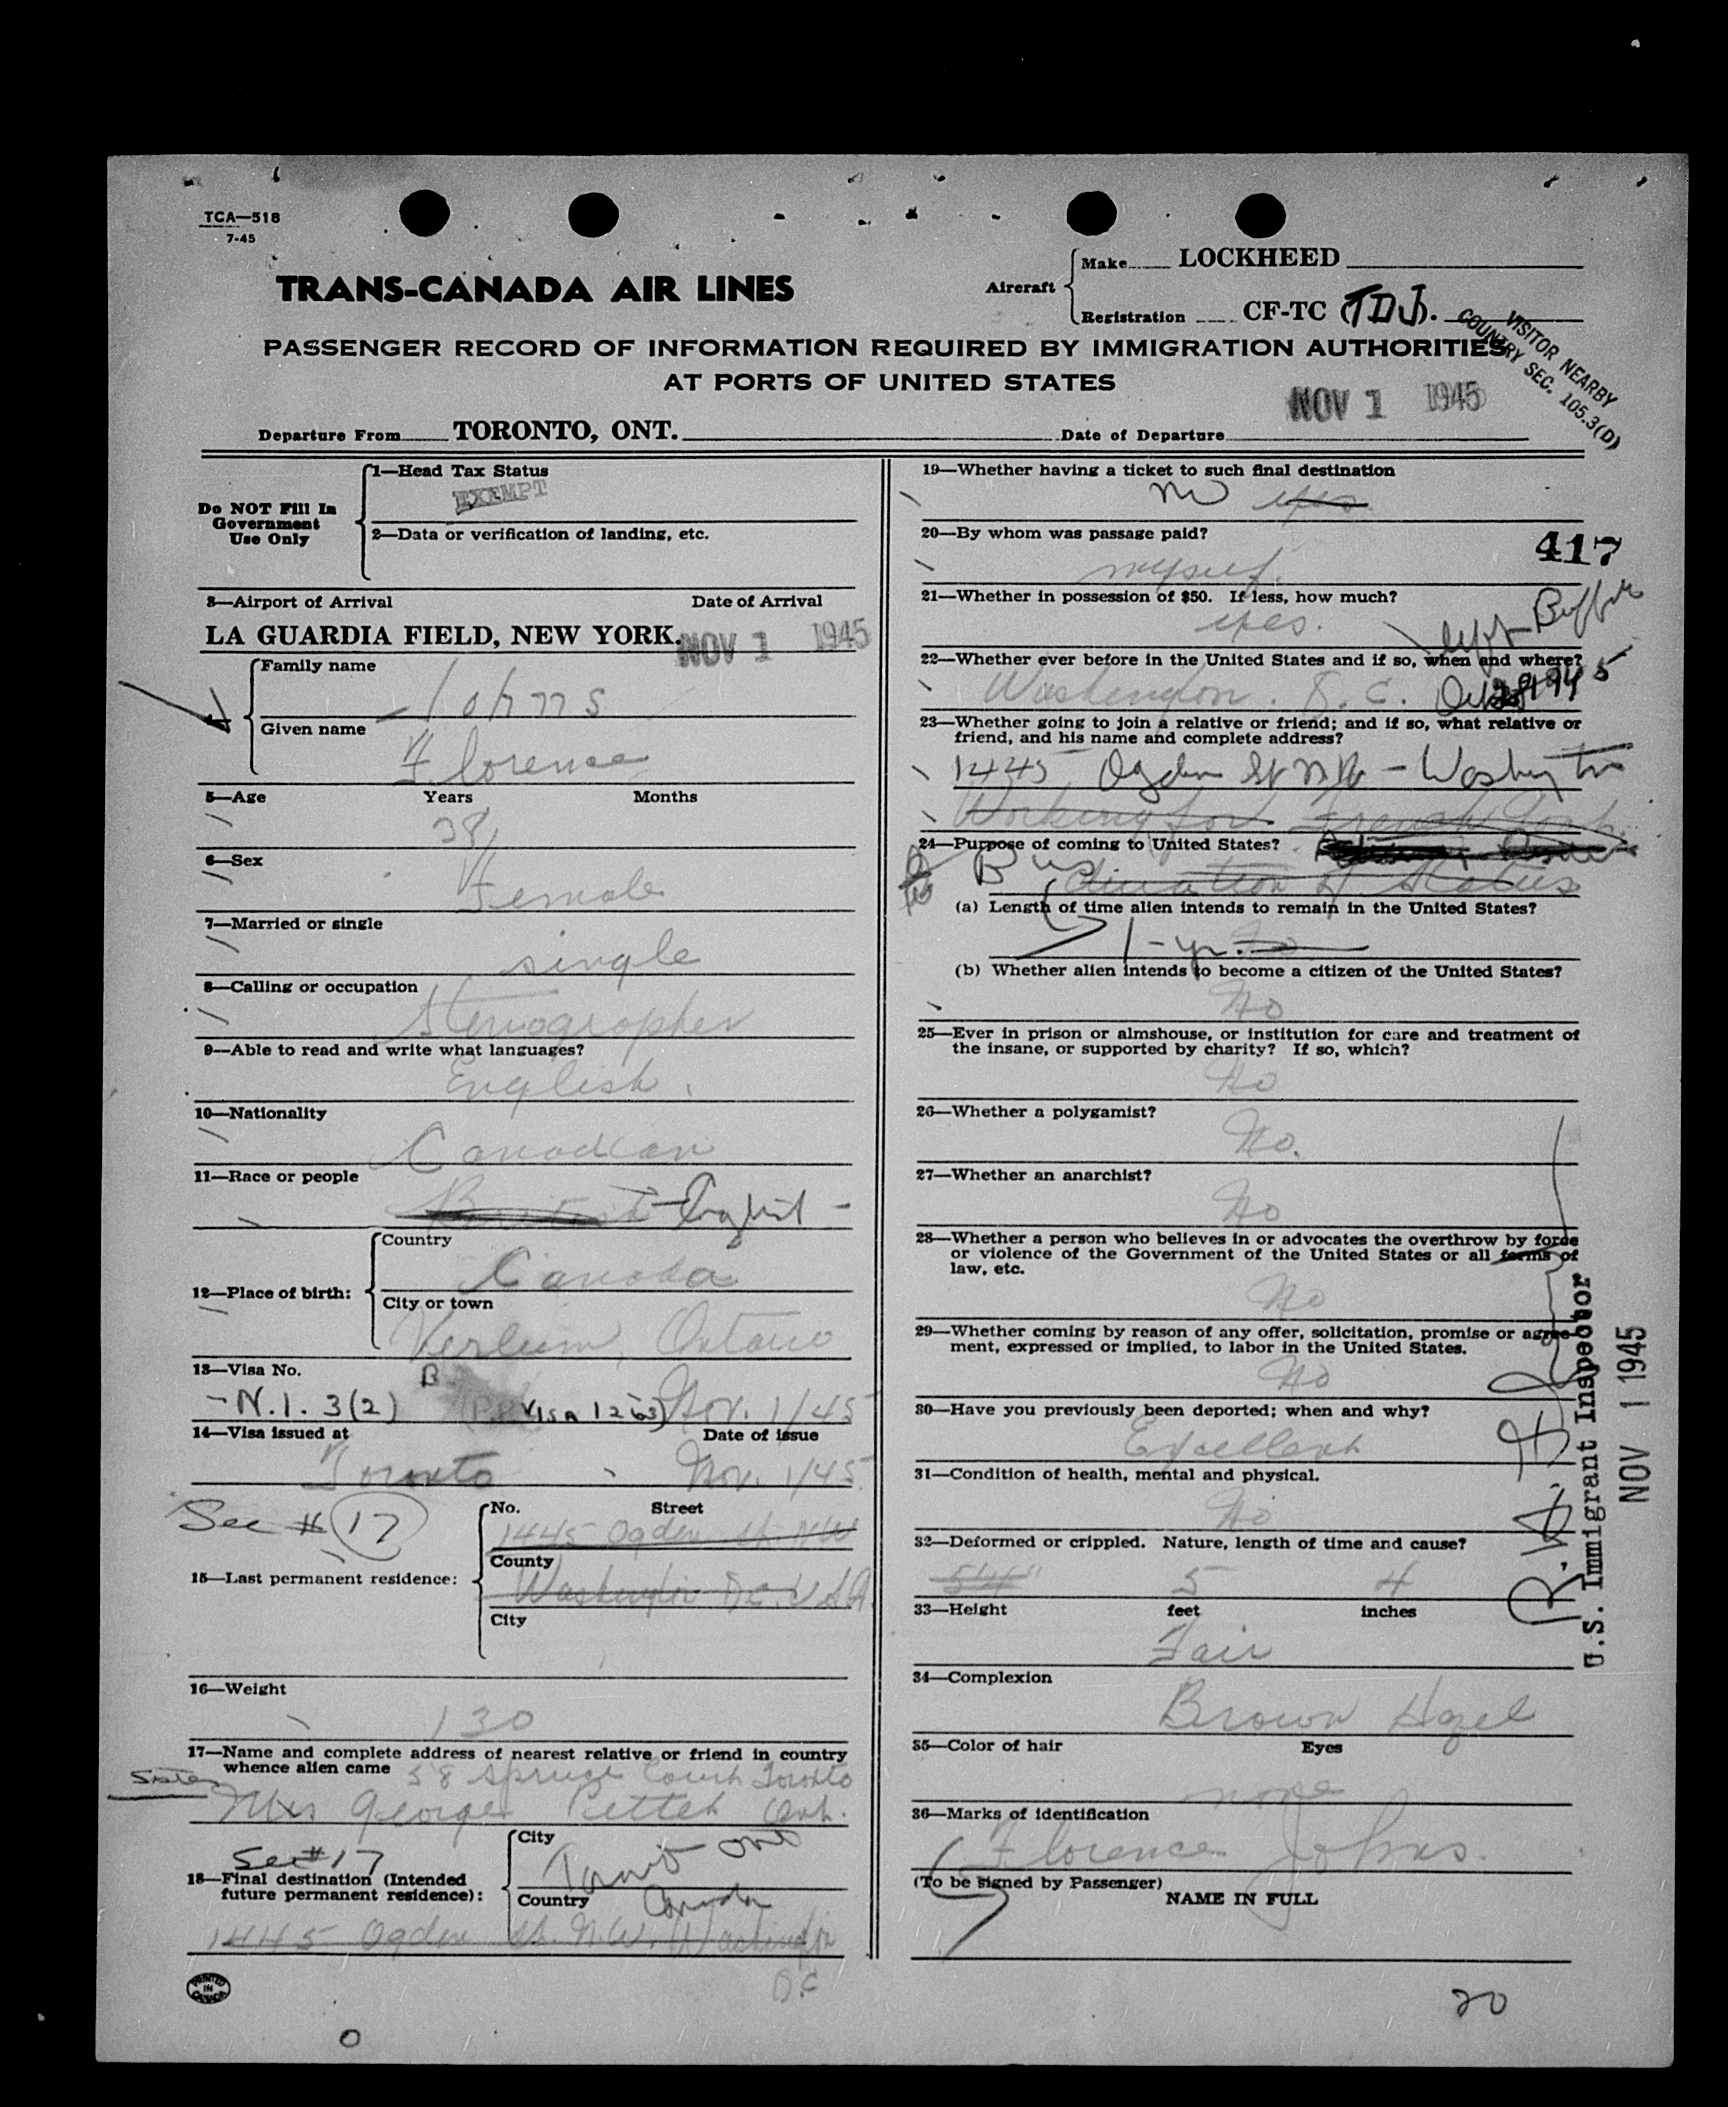 TCA—518
7-45
TRANS-CANADA AIR LINES
Aircraft
Make LOCKHEED
Registration CF-TC (TDJ).
VISITOR NEARBY
COUNTRY SEC. 105.3(D)
PASSENGER RECORD OF INFORMATION REQUIRED BY IMMIGRATION AUTHORITIES
AT PORTS OF UNITED STATES
NOV 1 1945
Departure From TORONTO, ONT. Date of Departure
Do NOT Fill In
Government
Use Only
1—Head Tax Status
EXEMPT
2—Data or verification of landing, etc.
3—Airport of Arrival Date of Arrival
LA GUARDIA FIELD, NEW YORK. NOV 1 1945
4—
Family name
Johns
Given name
Florence
5—Age Years Months
38
6—Sex
Female
7—Married or single
single
8—Calling or occupation
Stenographer
9—Able to read and write what languages?
English.
10—Nationality
Canadian
11—Race or people
British English -
12—Place of birth:
Country
Canada
City or town
Ontario
13—Visa No.
B
- N.I. 3(2) (P.P. VISA 1263) Nov. 1/45
14—Visa issued at Date of issue
Toronto Nov. 1/45
See # 17
15—Last permanent residence:
No. Street
1445 Ogden St. NW
County
Washington D.C. U.S.A.
City
16—Weight
130
17—Name and complete address of nearest relative or friend in country
whence alien came 58 Spruce Court Toronto
Sister
Mrs George Ont.
See # 17
18—Final destination (Intended
future permanent residence):
City
Toronto Ont
Country
Canada
1445 Ogden St. N.W. Washington
D.C
PRINTED
IN
CANADA
0
19—Whether having a ticket to such final destination
no yes.
20—By whom was passage paid?
417
myself.
21—Whether in possession of $50. If less, how much?
yes.
left Buffalo
22—Whether ever before in the United States and if so, when and where?
Washington. D.C. Oct 28 1945
23—Whether going to join a relative or friend; and if so, what relative or
friend, and his name and complete address?
1445 Ogden St NW - Washington
Working for French
24—Purpose of coming to United States?
Bus
of Status
(a) Length of time alien intends to remain in the United States?
1-yr.
(b) Whether alien intends to become a citizen of the United States?
No
25—Ever in prison or almshouse, or institution for care and treatment of
the insane, or supported by charity? If so, which?
No
26—Whether a polygamist?
No.
27—Whether an anarchist?
No
28—Whether a person who believes in or advocates the overthrow by force
or violence of the Government of the United States or all forms of
law, etc.
No
29—Whether coming by reason of any offer, solicitation, promise or agree-
ment, expressed or implied, to labor in the United States.
No
30—Have you previously been deported; when and why?
Excellent
31—Condition of health, mental and physical.
No
32—Deformed or crippled. Nature, length of time and cause?
5'4" 5 4
33—Height feet inches
Fair
34—Complexion
Brown Hazel
35—Color of hair Eyes
none
36—Marks of identification
Florence Johns.
(To be signed by Passenger)
NAME IN FULL
U.S. Immigrant Inspector
NOV 1 1945
20